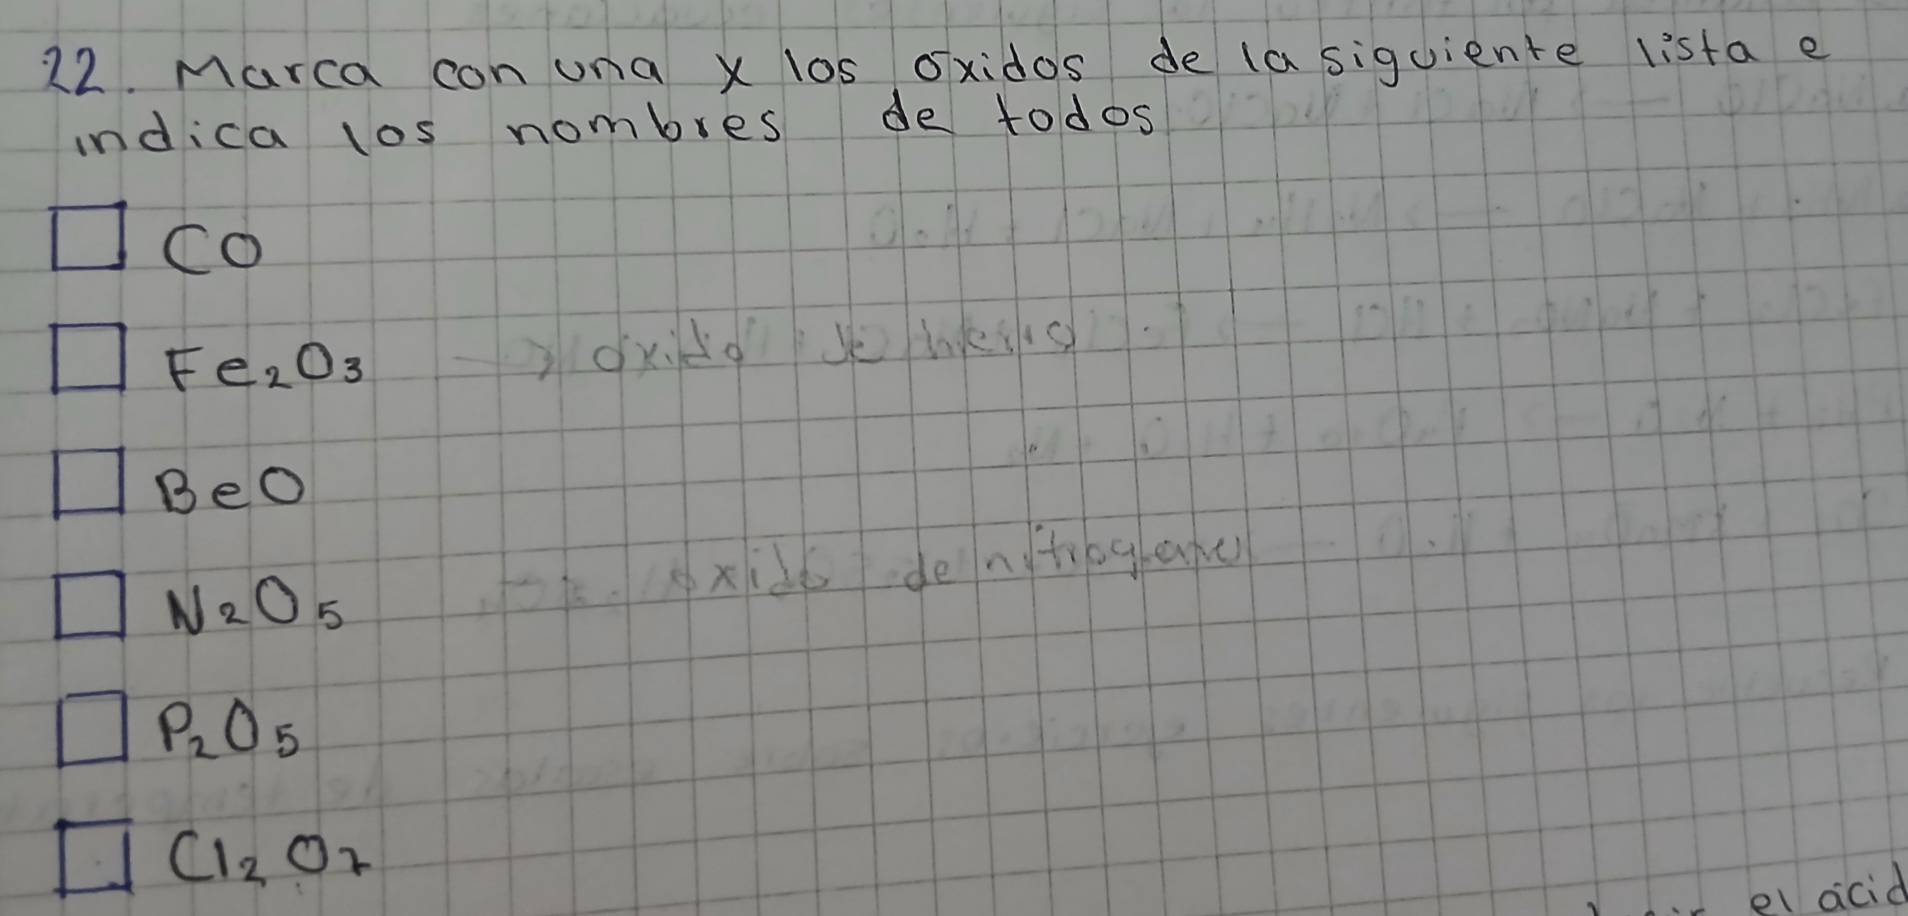 22. Marca con una x los óxidos de la siguiente lista e
indica los nombres de todos
CO
Fe₂O₃ → óxido de hierro
BeO
N₂O₅ óxido de nitrogeno
P₂O₅
Cl₂O₇
el ácid